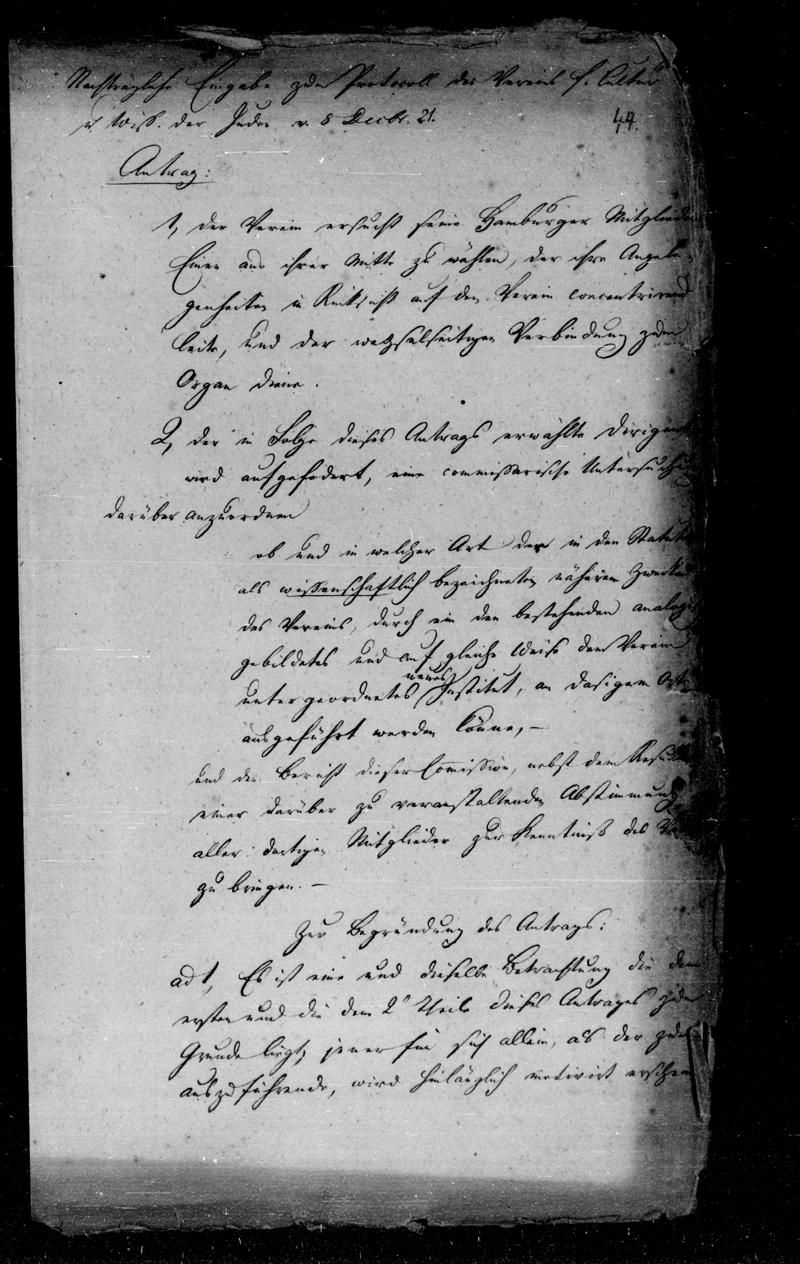 Nachträgliche Eingabe zum Protocoll des Vereins f. Cultur
u Wiss. der Juden v. 8 Decbr. 21.
44.
Antrag:
1, der Verein ersucht seine Hamburger Mitglieder
Einen aus ihrer Mitte zu wählen, der ihre Angele-
genheiten in Rücksicht auf den Verein concentrirend
leite, und der wechselseitigen Verbindung zum
Organ diene.
2, der in Folge dieses Antrags erwählte Dirigent
wird aufgefodert, eine commissarische Untersuchung
darüber anzuordnen
ob und in welcher Art der in den Statuten
als wissenschaftlich bezeichneten näheren Zwecke
des Vereins, durch ein den bestehenden analog
gebildetes und auf gleiche Weise dem Verein
untergeordnetes neues Institut, an dasigem Orte
ausgeführt werden könne, –
und den Bericht dieser Commission, nebst dem Resultat
einer darüber zu veranstaltenden Abstimmung
aller dortigen Mitglieder zur Kenntniß des
zu bringen. –
Zur Begründung des Antrags:
ad 1, Es ist eine und dieselbe Betrachtung die dem
ersten und die dem 2n Theile dieses Antrages zum
Grunde liegt; jener für sich allein, als der
auszuführende, wird hinlänglich motivirt erscheinen